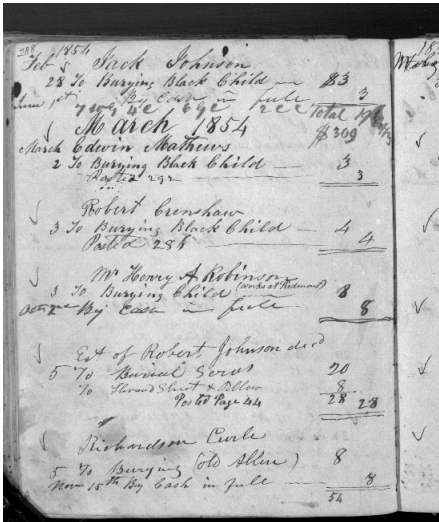 288
1854
Feb Jack Johnson
28 To Burying Black Child — $3
June 1st By Cash in full 3
Total
March 1854 $309
March Edwin Mathews
2 To Burying Black Child — 3
Posted 292 3
Robert Crenshaw
3 To Burying Black Child — 4
Posted 286 4
Mr Henry A Robinson
3 To Burying Child (works at 8
By Cash in full 8
Est of Robert Johnson decd
5 To Burial Servs 20
To Shroud Sheet & Pillow 8
Posted Page 44 28 28
Richardson Curle
5 To Burying (old Allen) 8
Nov 15th By Cash in full — 8
54